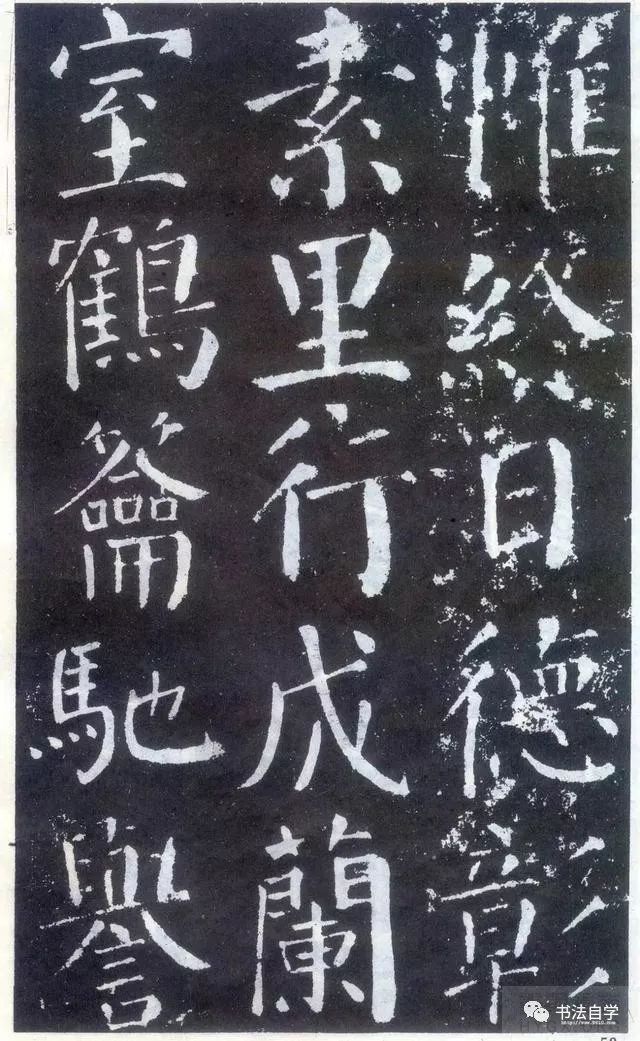 惟終日德彰
素里行成蘭
室鶴籥馳譽
书法自学